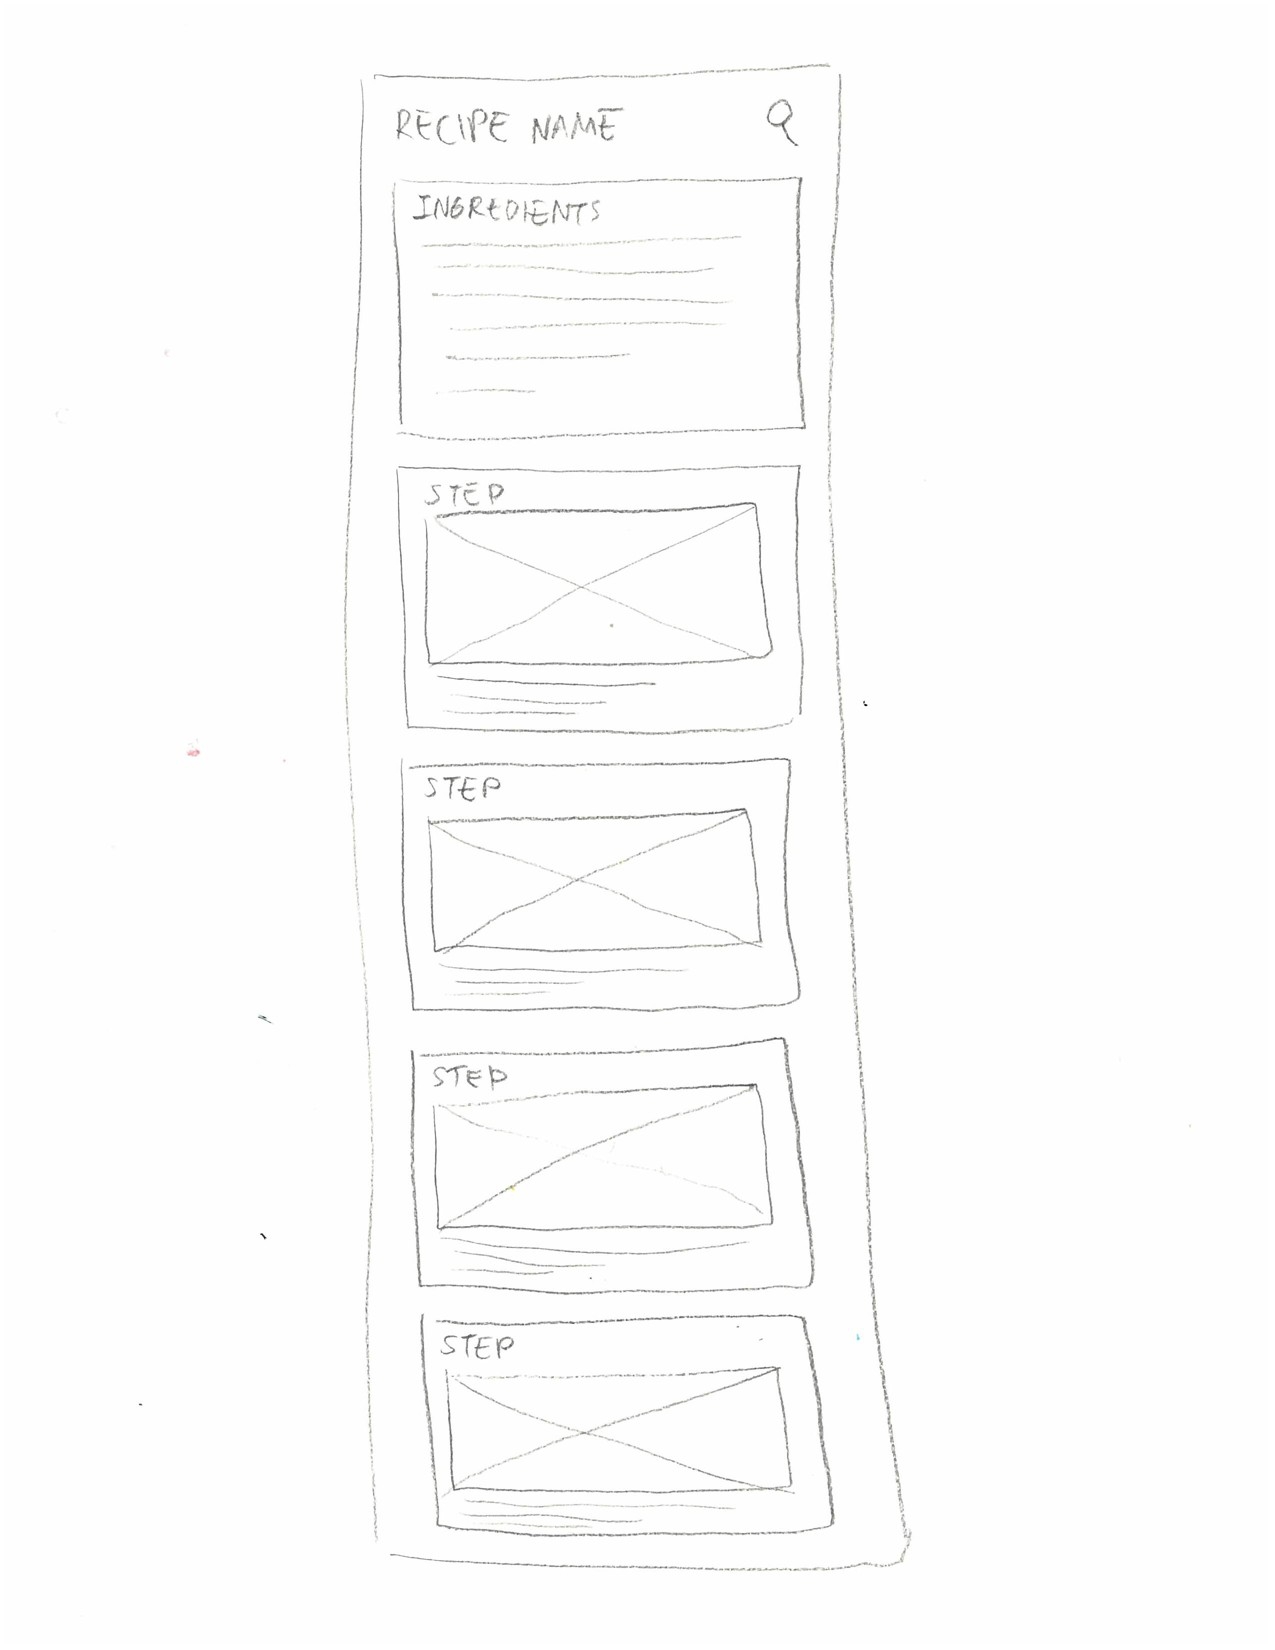 RECIPE NAME
INGREDIENTS
STEP
STEP
STEP
STEP